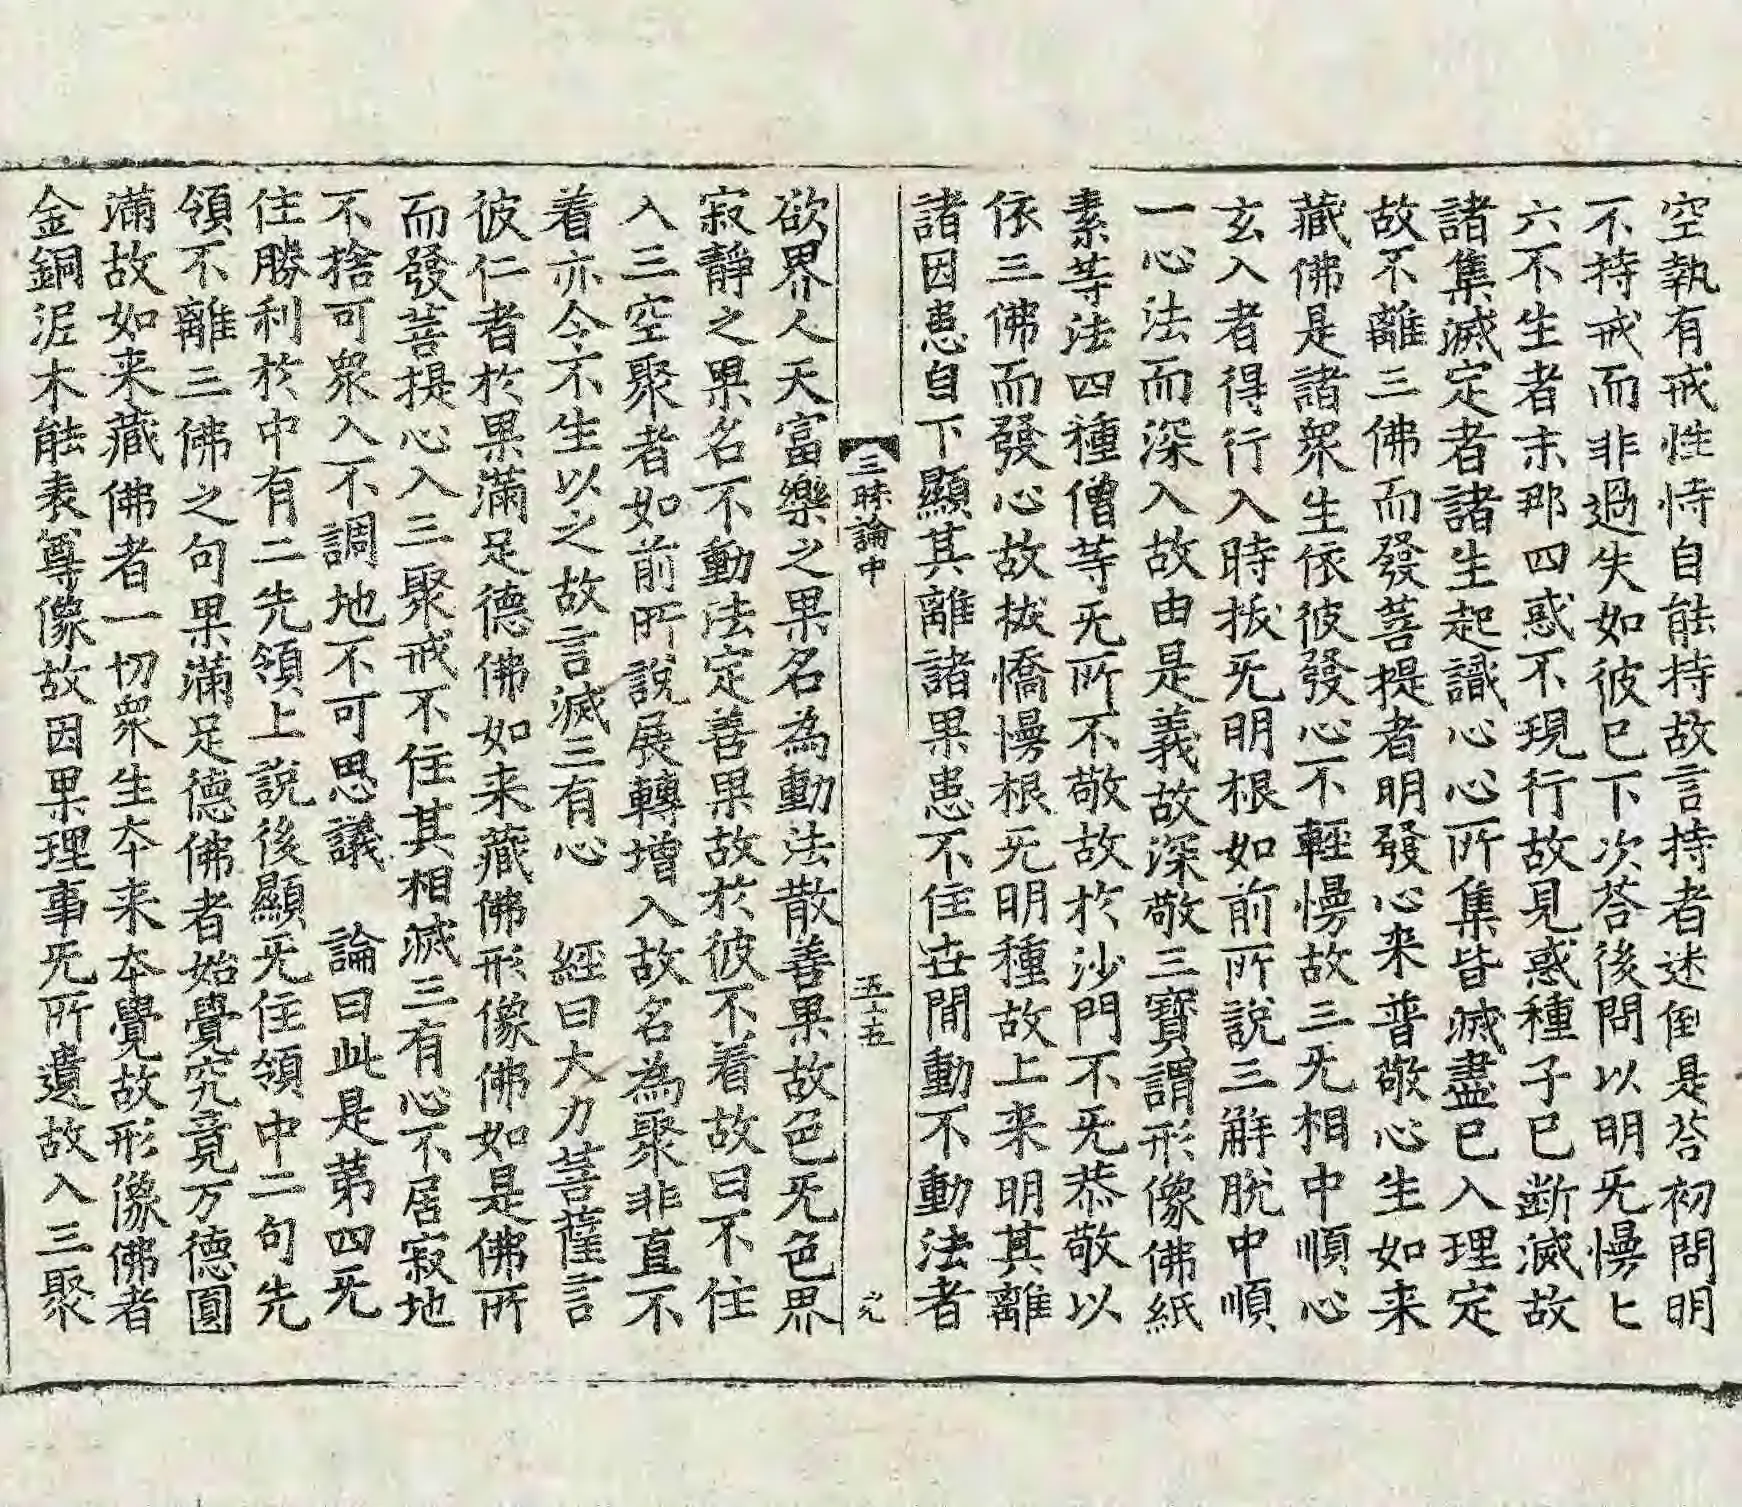 空執有戒性恃自能持故言持者迷倒是荅初問明
不持戒而非過失如彼已下次荅後問以明旡慢匕
六不生者末那四惑不現行故見惑種子已断滅故
諸集滅定者諸生起識心心所集皆滅盡已入理定
故不離三佛而發菩提者明發心来普敬心生如来
藏佛是諸衆生依彼發心不輕慢故三旡相中順心
玄入者得行入時拔旡明根如前所說三解脫中順
一心法而深入故由是義故深敬三寶謂形像佛紙
素等法四種僧等旡所不敬故於沙門不旡恭敬以
依三佛而發心故拔憍慢根旡明種故上来明其離
諸因患自下顯其離諸果患不住世間動不動法者
三昧論中 五十五 元
欲界人天富樂之果名為動法散善果故色旡色界
寂靜之果名不動法定善果故於彼不着故曰不住
入三空聚者如前所說展轉增入故名為聚非直不
着亦令不生以之故言滅三有心 經曰大力菩薩言
彼仁者於果滿足德佛如来藏佛形像佛如是佛所
而發菩提心入三聚戒不住其相滅三有心不居寂地
不捨可衆入不調地不可思議 論曰此是苐四旡
住勝利於中有二先領上說後顯旡住領中二句先
領不離三佛之句果滿足德佛者始覺究竟万德圓
滿故如来藏佛者一切衆生夲来夲覺故形像佛者
金銅泥木能表尊像故因果理事旡所遺故入三聚